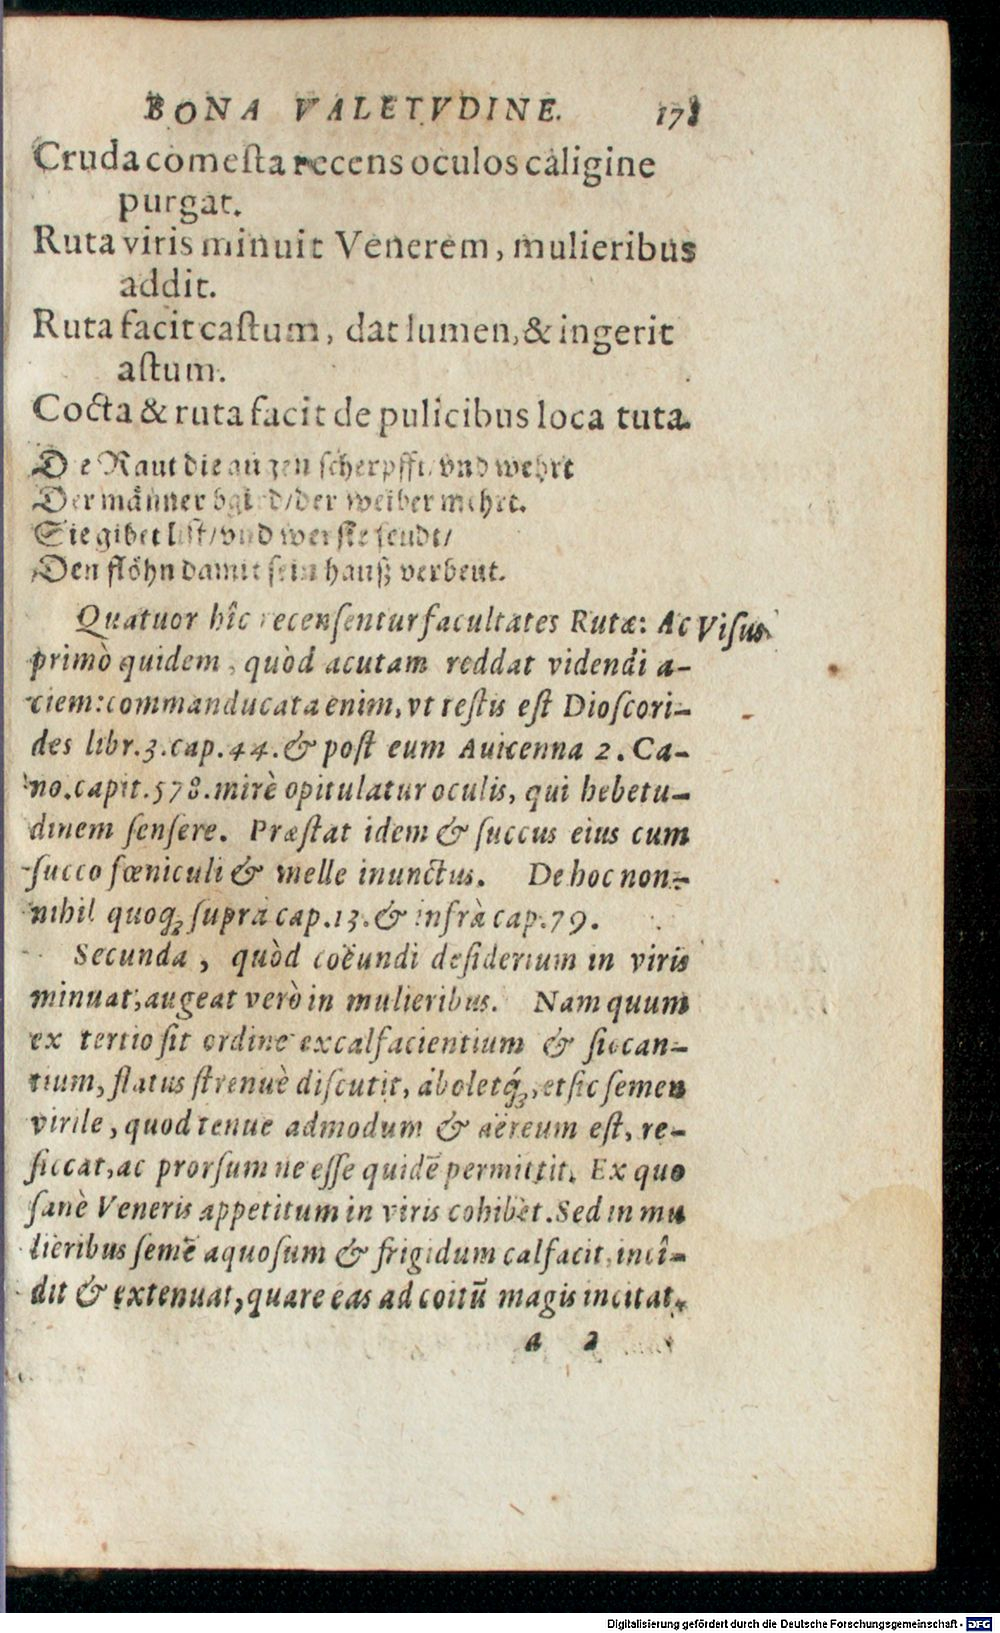 BONA VALETVDINE. 178
Cruda comeſta recens oculos caligine
purgat.
Ruta viris minuit Venerem, mulieribus
addit.
Ruta facit caſtum, dat lumen, & ingerit
aſtum.
Cocta & ruta facit de pulicibus loca tuta.
Die Raut die augen ſcherpfft/ vnd wehrt
Der männer bgird/ der weiber mehrt.
Sie gibet liſt/ vnd
Den flöhn damit ſein hauſz verbeut.
Quatuor hîc recenſentur facultates Rutæ: Ac
Viſus
primò quidem, quòd acutam reddat videndi a-
ciem: commanducata enim, vt teſtis eſt Dioſcori-
des libr.3.cap.44.& poſt eum Auicenna 2. Ca-
no.capit.578.mirè opitulatur oculis, qui hebetu-
dinem ſenſere. Præſtat idem & ſuccus eius cum
ſucco fœniculi & melle inunctus. De hoc non-
nihil quoq; ſuprà cap.13.& infrà cap.79.
Secunda, quòd coëundi deſiderium in viris
minuat, augeat verò in mulieribus. Nam quum
ex tertio ſit ordine excalfacientium & ſiccan-
tium, flatus ſtrenuè diſcutit, aboletq́;, et ſic ſemen
virile, quod tenue admodum & aëreum eſt, re-
ſiccat, ac prorſum ne eſſe quidē permittit. Ex quo
ſanè Veneris appetitum in viris cohibet. Sed in mu
lieribus ſemē aquoſum & frigidum calfacit, incî-
dit & extenuat, quare eas ad coitū magis incitat.
a 2
Digitalisierung gefördert durch die Deutsche Forschungsgemeinschaft - DFG